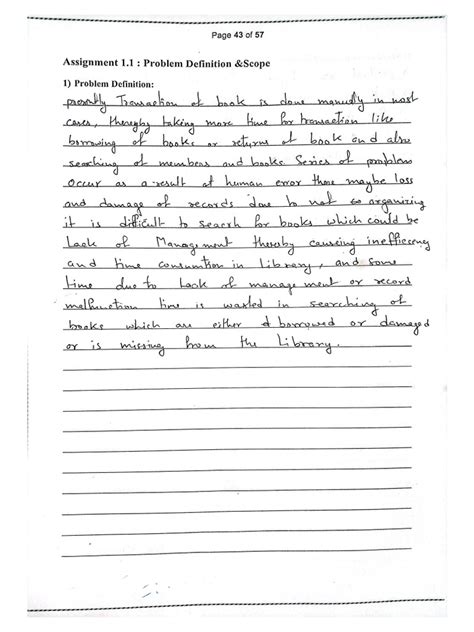 Page 43 of 57
Assignment 1.1 : Problem Definition &Scope
1) Problem Definition:
presently Transaction of book is done manually in most
cases, thereby taking more time for transaction like
borrowing of books or returns of book and also
searching of members and books. Series of problem
occur as a result of human error there maybe loss
and damage of records due to not organizing
it is difficult to search for books which could be
lack of Management thereby causing inefficcency
and time consumtion in Library, and some
time due to lack of management or record
malfunction time is wasted in searching of
books which are either borrowed or damaged
or is missing from the Library.